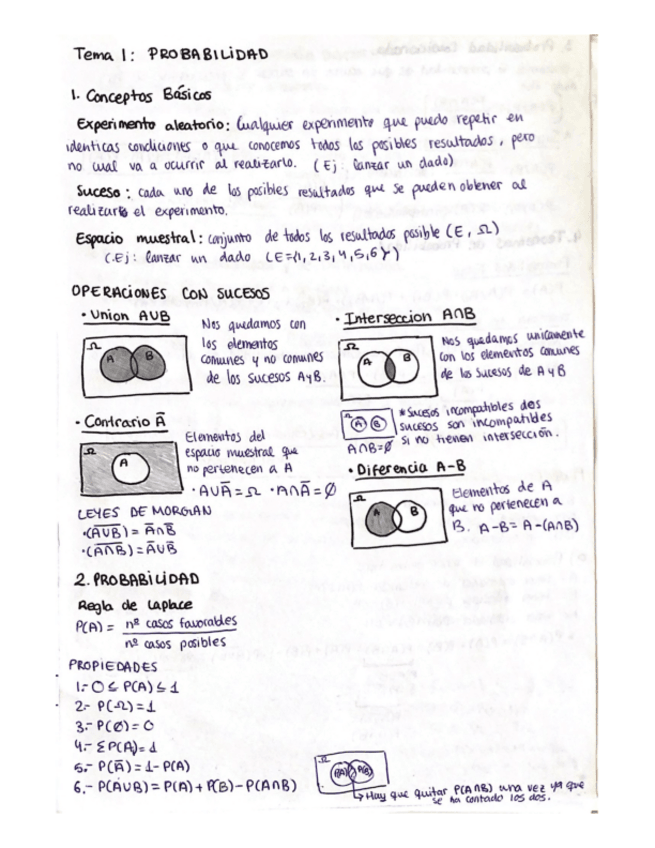 Tema 1: PROBABILIDAD
1. Conceptos Básicos
Experimento aleatorio: Cualquier experimento que puedo repetir en
identicas condiciones o que conocemos todos los posibles resultados, pero
no cual va a ocurrir al realizarlo. (Ej: lanzar un dado)
Suceso: cada uno de los posibles resultados que se pueden obtener al
realizarlo el experimento.
Espacio muestral: conjunto de todos los resultados posible (E, Ω)
(Ej: lanzar un dado (E={1,2,3,4,5,6})
OPERACIONES CON SUCESOS
· Union AUB
Nos quedamos con
los elementos
comunes y no comunes
de los sucesos A y B.
Ω
A B
· Interseccion A∩B
Nos quedamos unicamente
con los elementos comunes
de los sucesos de A y B
Ω
A B
Ω
A B
A∩B=Ø
* Sucesos incompatibles dos
sucesos son incompatibles
si no tienen intersección.
· Contrario Ā
Elementos del
espacio muestral que
no pertenecen a A
Ω
A
· AUĀ=Ω · A∩Ā=Ø
· Diferencia A-B
Elementos de A
que no pertenecen a
B. A-B= A-(A∩B)
Ω
B
LEYES DE MORGAN
·(A̅U̅B̅)= Ā∩B̅
·(A̅∩̅B̅)= ĀUB̅
2. PROBABILIDAD
Regla de Laplace
P(A) = nº casos favorables
nº casos posibles
PROPIEDADES
1.- 0 ≤ P(A) ≤ 1
2.- P(Ω)=1
3.- P(Ø)=0
4.- ΣP(A)=1
5.- P(Ā)=1-P(A)
6.- P(AUB)= P(A)+P(B)-P(A∩B)
Ω
P(A) P(B)
↳ Hay que quitar P(A∩B) una vez ya que
se ha contado los dos.